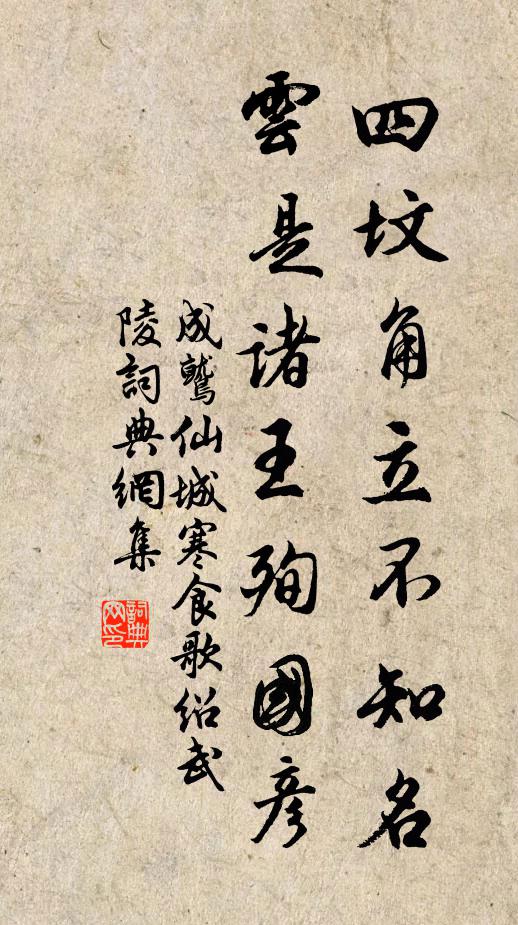 四坟角立不知名
雲是诸王殉國彦
成鷲仙城寒食歌绍武
陵詞典網集
詞典网印